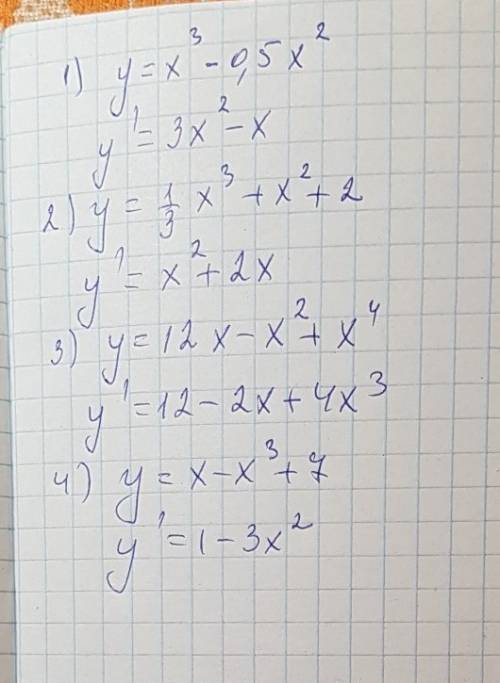 1) y = x³ - 0,5x²
y' = 3x² - x
2) y = 1/3 x³ + x² + 2
y' = x² + 2x
3) y = 12x - x² + x⁴
y' = 12 - 2x + 4x³
4) y = x - x³ + 7
y' = 1 - 3x²